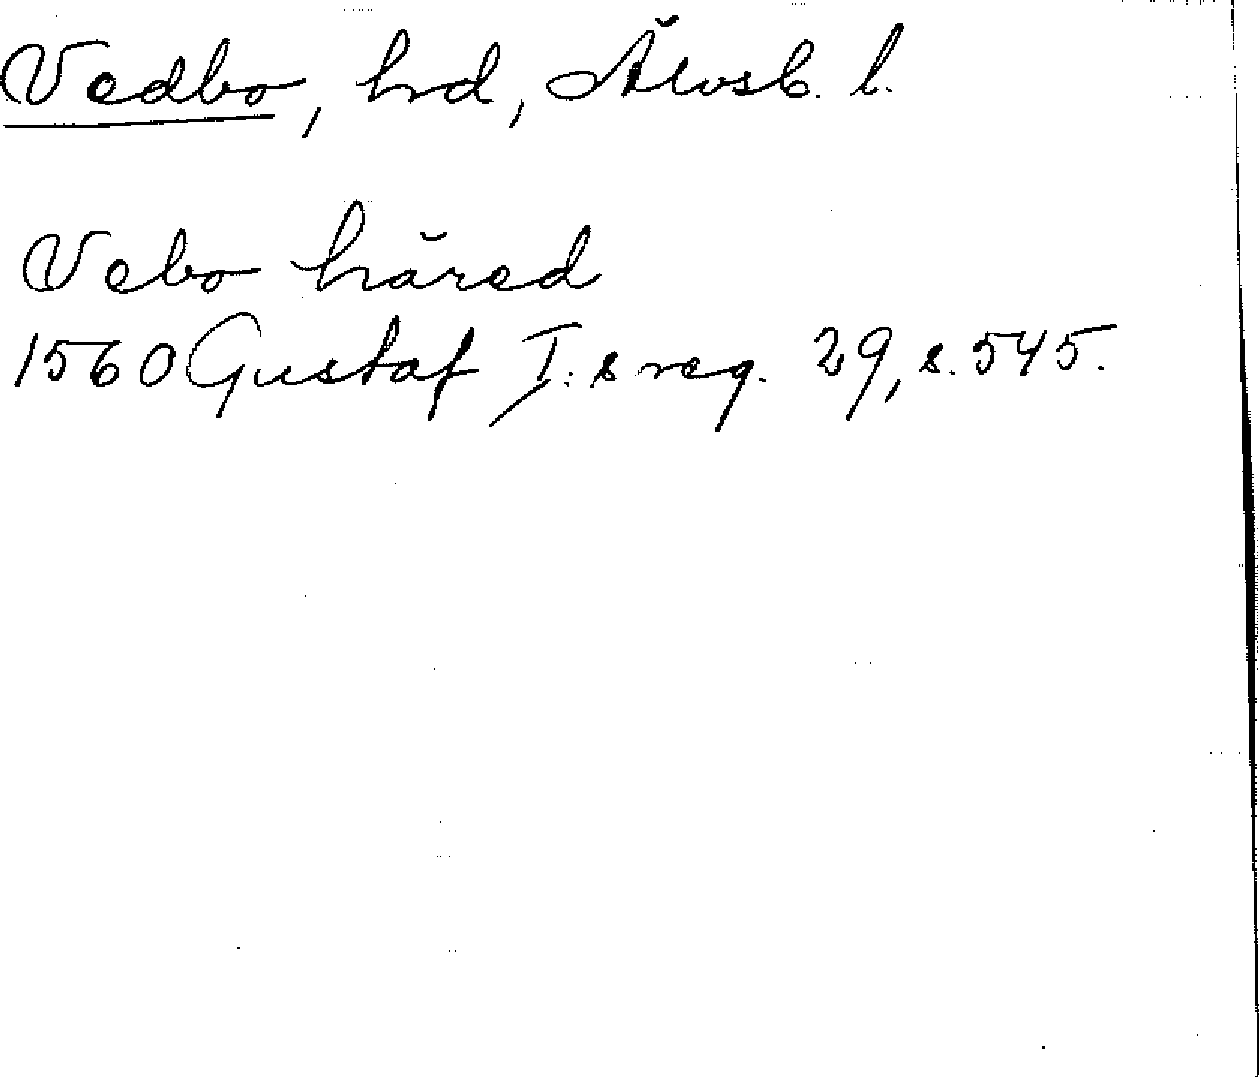 Vedbo, hrd, Älvsb. l.
Vebo härad
1560 Gustaf I:s reg. 29, s. 545.